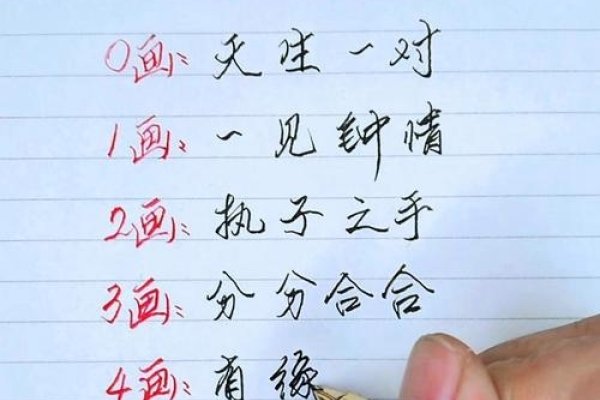 0画:天生一对
1画:一见钟情
2画:执子之手
3画:分分合合
4画:有缘